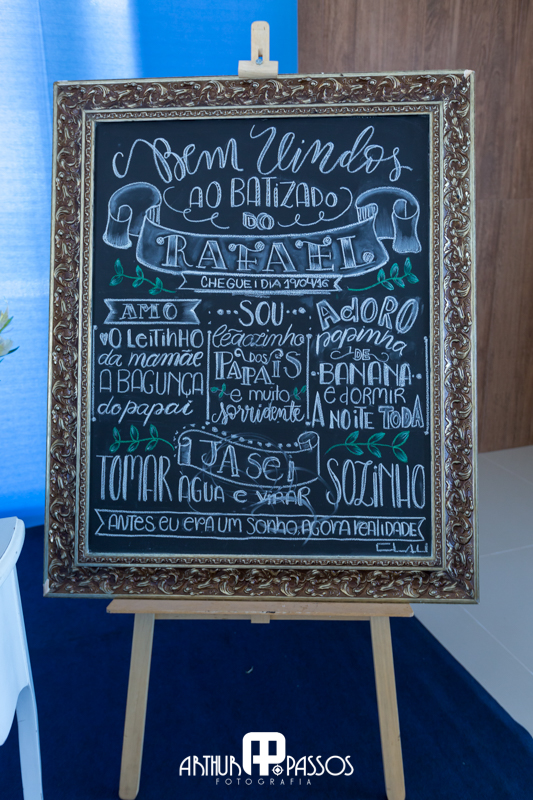 Bem Vindos
AO BATIZADO
DO
RAFAEL
CHEGUEI DIA 19/04/16
AMO
O LEITINHO
da mamãe
A BAGUNÇA
do papai
SOU
leãozinho
DOS
PAPAIS
e muito
sorridente
ADORO
papinha
DE
BANANA
e dormir
A NOITE TODA
JÁ SEI
TOMAR ÁGUA E VIRAR SOZINHO
ANTES EU ERA UM SONHO, AGORA REALIDADE
ARTHUR PASSOS
FOTOGRAFIA